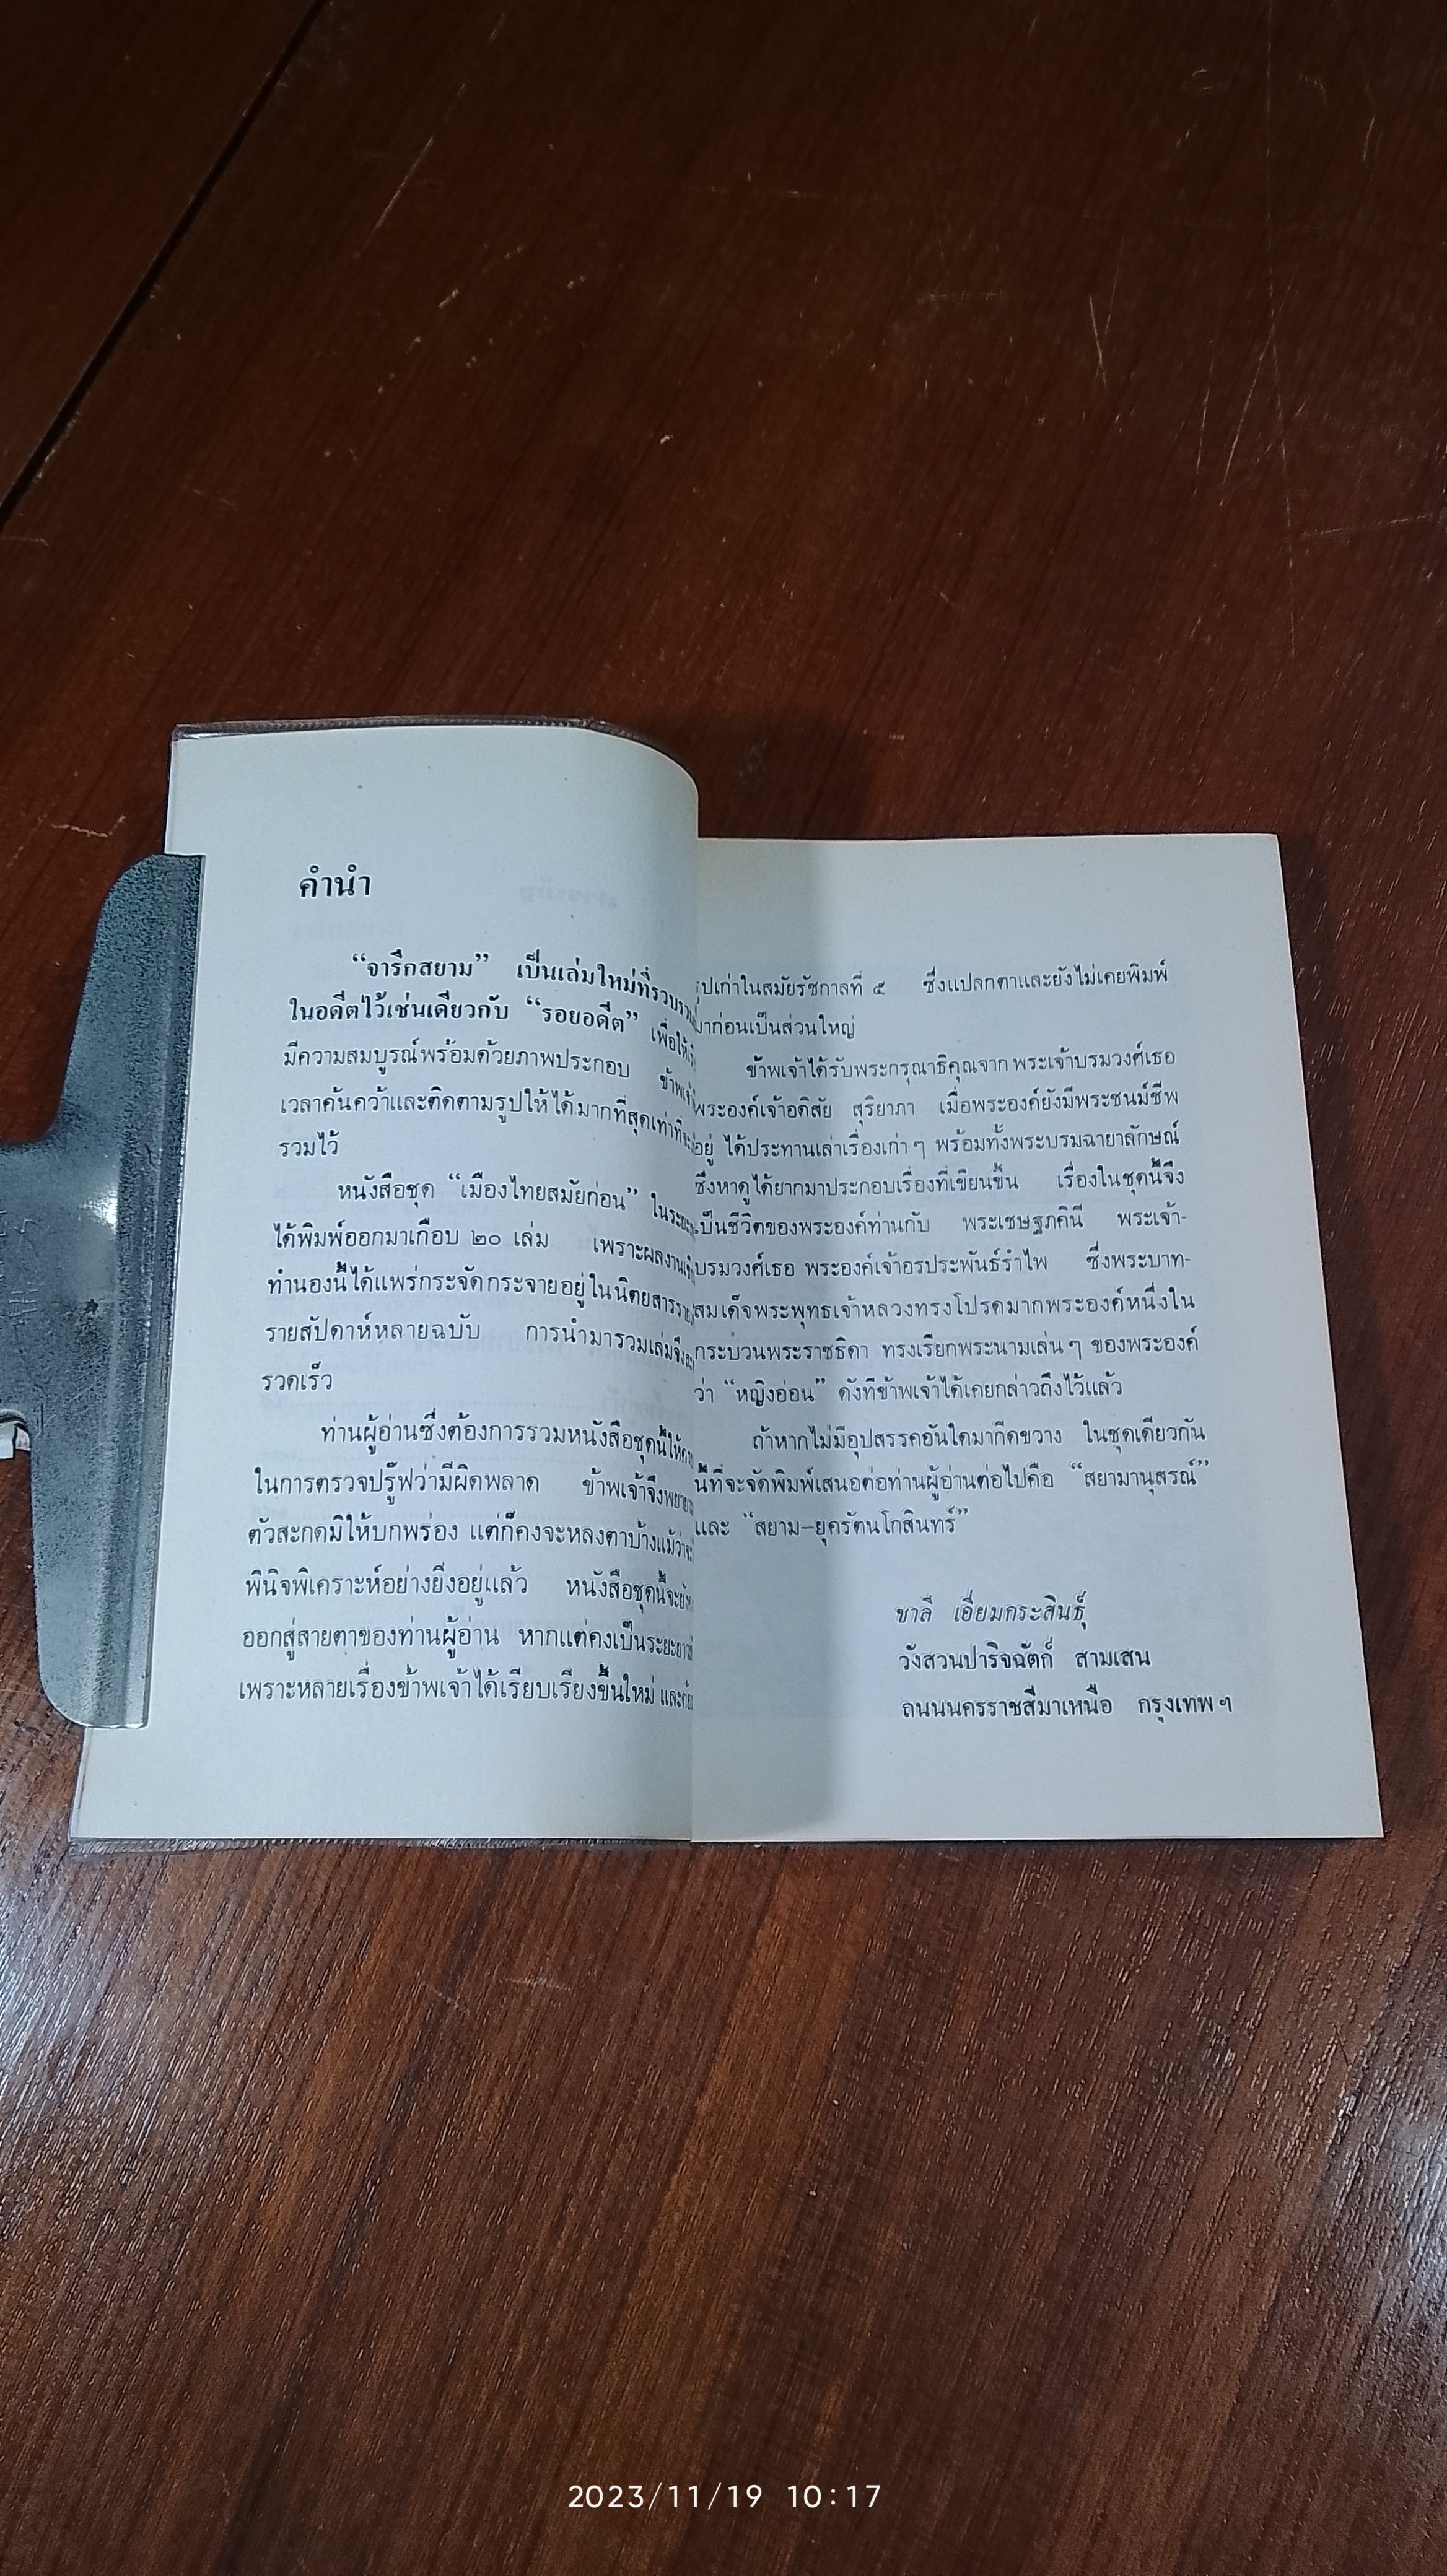 คำนำ
“จารึกสยาม” เป็นเล่มใหม่ที่รวบรวม
ในอดีตไว้เช่นเดียวกับ “รอยอดีต” เพื่อให้
มีความสมบูรณ์พร้อมด้วยภาพประกอบ
เวลาค้นคว้าและติดตามรูปให้ได้มากที่สุดเท่าที่
รวมไว้
หนังสือชุด “เมืองไทยสมัยก่อน”
ได้พิมพ์ออกมาเกือบ ๒๐ เล่ม เพราะผลงาน
ทำนองนี้ได้แพร่กระจัดกระจายอยู่ในนิตยสาร
รายสัปดาห์หลายฉบับ การนำมารวมเล่มจึง
รวดเร็ว
ท่านผู้อ่านซึ่งต้องการรวมหนังสือชุดนี้ให้
ในการตรวจปรู๊ฟว่ามีผิดพลาด ข้าพเจ้าจึง
ตัวสะกดมิให้บกพร่อง แต่ก็คงจะหลงตาบ้างแม้ว่า
พินิจพิเคราะห์อย่างยิ่งอยู่แล้ว หนังสือชุดนี้จะ
ออกสู่สายตาของท่านผู้อ่าน หากแต่คงเป็น
เพราะหลายเรื่องข้าพเจ้าได้เรียบเรียงขึ้นใหม่
รูปเก่าในสมัยรัชกาลที่ ๕ ซึ่งแปลกตาและยังไม่เคยพิมพ์
มาก่อนเป็นส่วนใหญ่
ข้าพเจ้าได้รับพระกรุณาธิคุณจาก พระเจ้าบรมวงศ์เธอ
พระองค์เจ้าอดิสัย สุริยาภา เมื่อพระองค์ยังมีพระชนม์ชีพ
อยู่ ได้ประทานเล่าเรื่องเก่า ๆ พร้อมทั้งพระบรมฉายาลักษณ์
ซึ่งหาดูได้ยากมาประกอบเรื่องที่เขียนขึ้น เรื่องในชุดนี้จึง
เป็นชีวิตของพระองค์ท่านกับ พระเชษฐภคินี พระเจ้า-
บรมวงศ์เธอ พระองค์เจ้าอรประพันธ์รำไพ ซึ่งพระบาท-
สมเด็จพระพุทธเจ้าหลวงทรงโปรดมากพระองค์หนึ่งใน
กระบวนพระราชธิดา ทรงเรียกพระนามเล่น ๆ ของพระองค์
ว่า “หญิงอ่อน” ดังที่ข้าพเจ้าได้เคยกล่าวถึงไว้แล้ว
ถ้าหากไม่มีอุปสรรคอันใดมากีดขวาง ในชุดเดียวกัน
นี้ที่จะจัดพิมพ์เสนอต่อท่านผู้อ่านต่อไปคือ “สยามานุสรณ์”
และ “สยาม–ยุครัตนโกสินทร์”
ชาลี เอี่ยมกระสินธุ์
วังสวนปาริจฉัตก์ สามเสน
ถนนนครราชสีมาเหนือ กรุงเทพ ฯ
2023/11/19 10:17